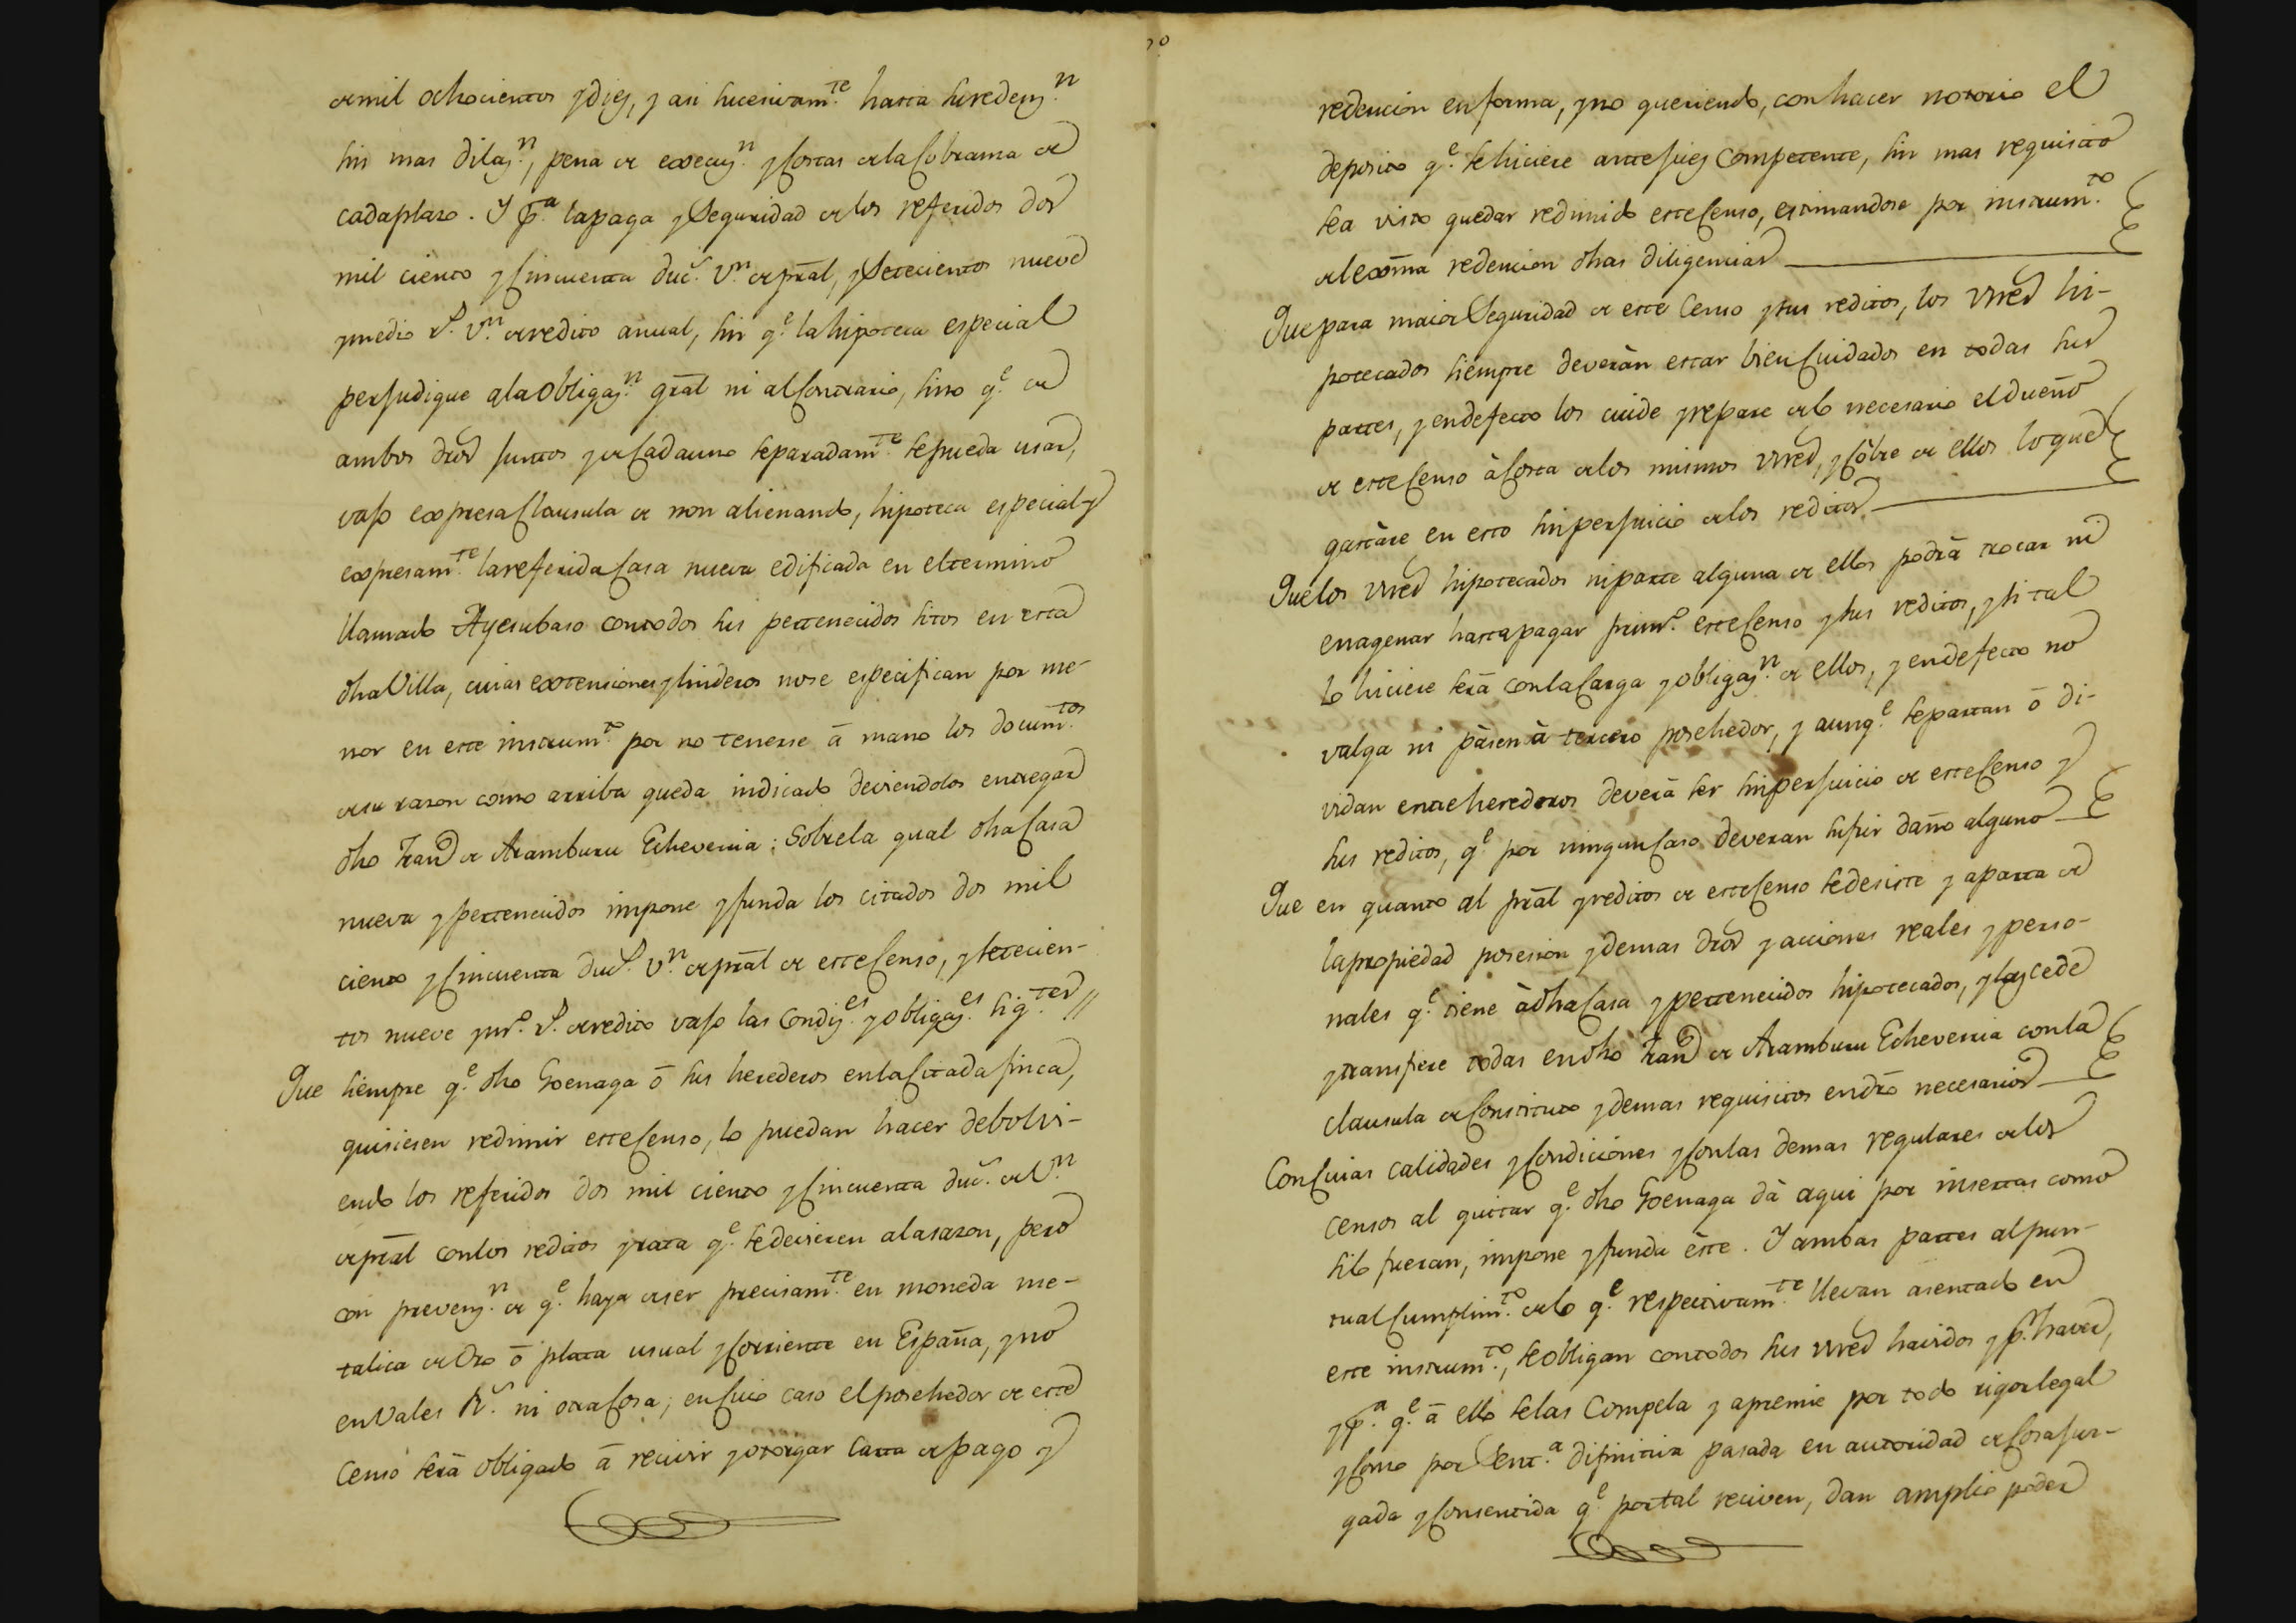 de mil ochocientos y diez, y asi sucesivam.te hasta su redenz.n
sin mas dilaz.n, pena de execuz.n y costas de la cobranza de
cada plazo. Y p.a la paga y seguridad de los referidos dos
mil ciento y cincuenta duc.s v.n de pral, y setecientos nueve
y medio r.s v.n de redito anual, sin q.e la hipoteca especial
perjudique a la obligaz.n gral ni al contrario, sino q.e de
ambos dros juntos y de cada uno separadam.te se pueda usar,
vajo expresa clausula de non alienando, hipoteca especial y
expresam.te la referida casa nueva edificada en el termino
llamado Ayesubaso con todos sus pertenecidos sitos en esta
dha Villa, cuias extensiones y linderos no se especifican por me-
nor en este instrum.to por no tenerse á mano los docum.tos
de su razon como arriba queda indicado deviendolos entregar
dho Fran.co de Aramburu Echeverria: Sobre la qual dha casa
nueva y pertenecidos impone y funda los citados dos mil
ciento y cincuenta duc.s v.n de pral de este censo, y setecien-
tos nueve y m.o r.s de redito vajo las condiz.es y obligaz.es sig.tes //
Que siempre q.e dho Goenaga ó sus herederos en la citada finca,
quisiesen redimir este censo, lo puedan hacer debolvi-
endo los referidos dos mil ciento y cincuenta duc.s de v.n
de pral con los reditos y rata q.e se devieren a la sazon, pero
con prevenz.n de q.e haya de ser precisam.te en moneda me-
talica de Oro ó plata usual y corriente en España, y no
en Vales R.s ni otra cosa; en cuio caso el posehedor de este
censo será obligado á recivir y otorgar carta de pago y
redencion en forma, y no queriendo, con hacer notorio el
deposito q.e se hiciere ante juez competente, sin mas requisito
sea visto quedar redimido este censo, estimandose por instrum.to
de lexma redencion dhas diligencias
Que para maior seguridad de este censo y sus reditos, los vnes hi-
potecados siempre deverán estar bien cuidados en todas sus
partes, y en defecto los cuide y repare de lo necesario el dueño
de este censo à costa de los mismos vnes, y cobre de ellos lo que
gastàre en esto sin perjuicio de los reditos
Que los vnes hipotecados ni parte alguna de ellos podrá trocar ni
enagenar hasta pagar prim.o este censo y sus reditos, y si tal
lo hiciere será con la carga y obligaz.n de ellos, y en defecto no
valga ni pàsen à tercero posehedor, y aunq.e se partan ó di-
vidan entre herederos deverá ser sin perjuicio de este censo y
sus reditos, q.e por ningun caso deveran sufrir daño alguno
Que en quanto al pral y reditos de este censo se desiste y aparta de
la propiedad posesion y demas dros y acciones reales y perso-
nales q.e tiene à dha casa y pertenecidos hipotecados, y las cede
y transfiere todas en dho Fran.co de Aramburu Echeverria con la
clausula de constituto y demas requisitos en dro necesarios
Con cuias calidades y condiciones y con las demas regulares de los
censos al quitar q.e dho Goenaga dà aqui por insertas como
si lo fueran, impone y funda èste. Y ambas partes al pun-
tual cumplim.to de lo q.e respectivam.te llevan asentado en
este instrum.to, se obligan con todos sus vnes havidos y p.r haver,
y p.a q.e á ello se las compela y apremie por todo rigor legal
y como por Sent.a difinitiva pasada en autoridad de cosa juz-
gada y consentida q.e por tal reciven, dan amplio poder